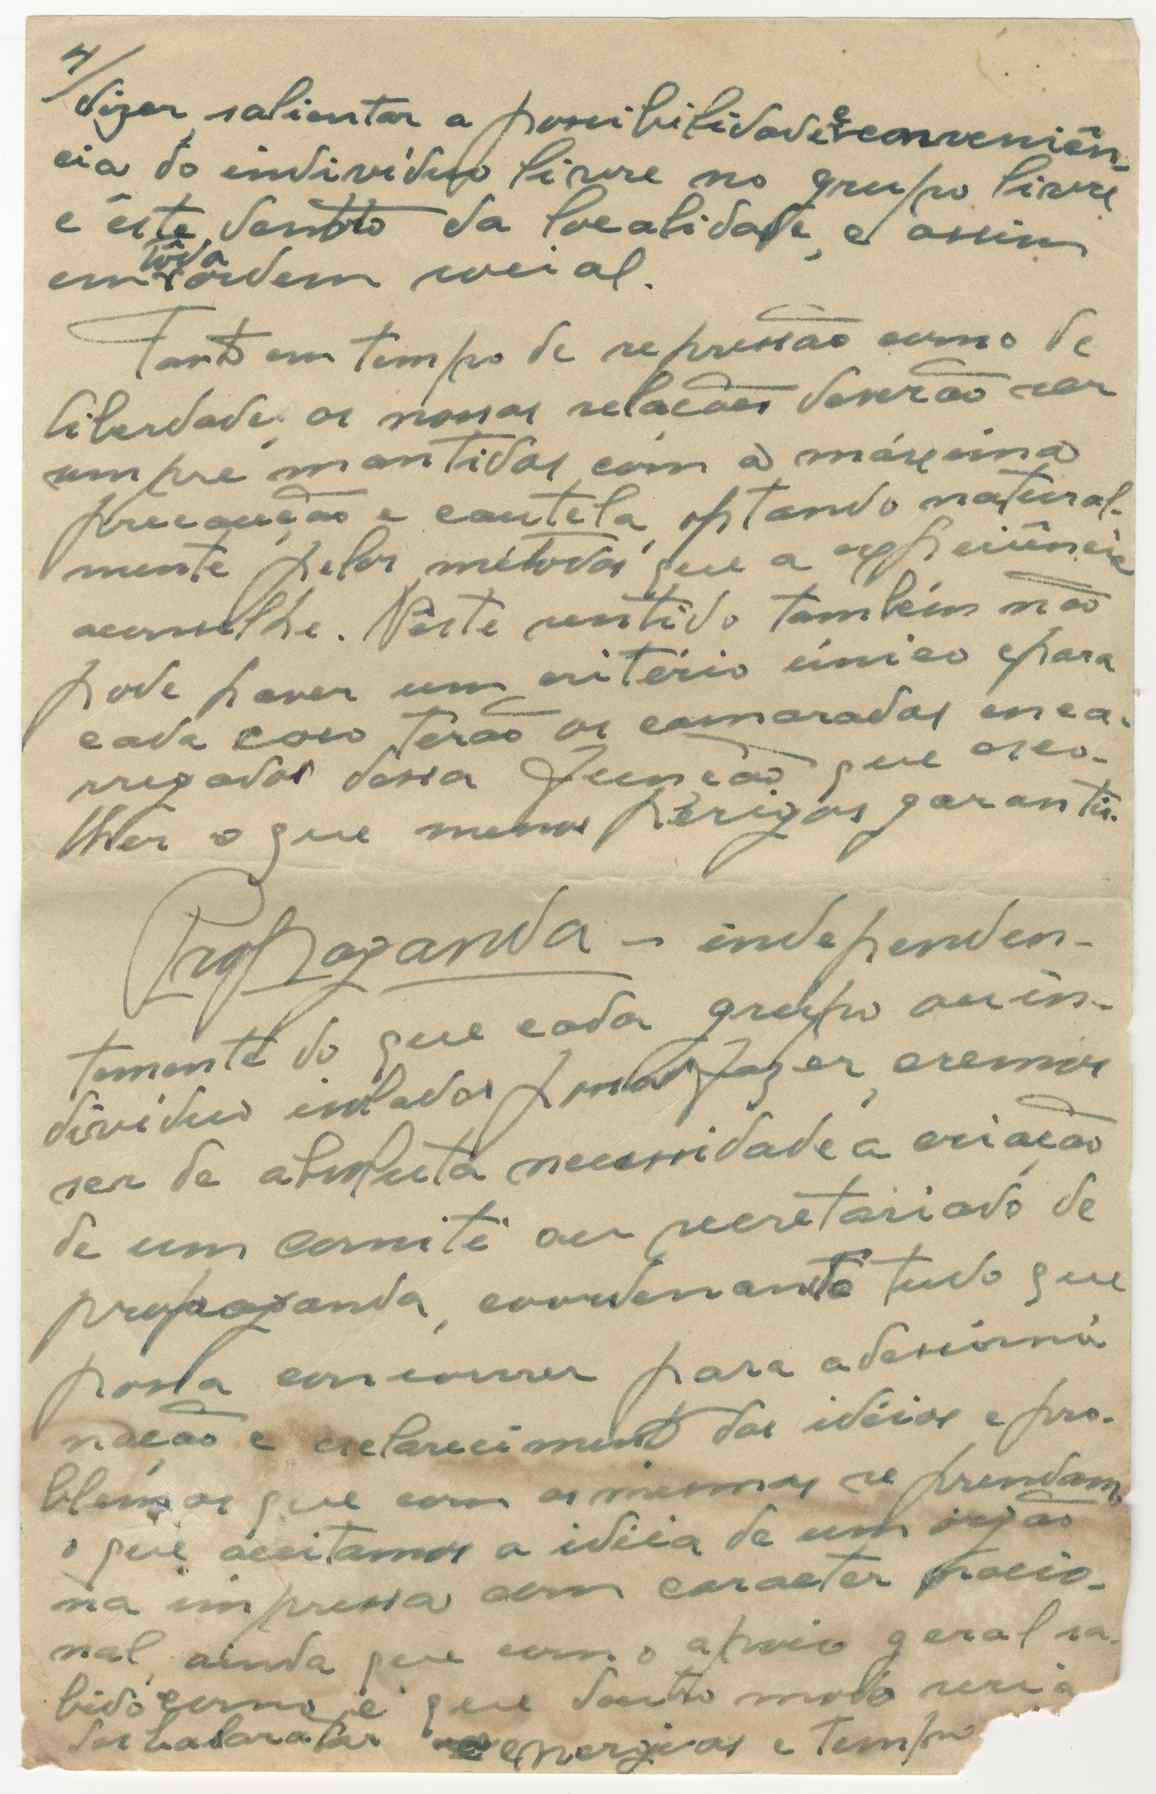 4/
dizer, salientar a possibilidade e conveniên-
cia do indivíduo livre no grupo livre
e êste dentro da localidade, e assim
em tôda ordem social.
Tanto em tempo de repressão como de
liberdade, as nossas relações deverão ser
sempre mantidas com a máxima
precaução e cautela, optando natural-
mente pelos métodos que a experiência
aconselhe. Nêste sentido também não
pode haver um critério único e para
cada caso terão os camaradas enca-
rregados dessa função que esco-
lher o que menos perigos garantir.
Propaganda - independen-
temente do que cada grupo ou in-
divíduo isolados possas fazer, cremos
ser de absoluta necessidade a criação
de um comité ou secretariado de
propaganda, coordenando tudo que
possa concorrer para a desiminá
nação e esclarecimento das idéias e pro-
blemas que com as mesmas se prendam,
o que aceitamos a idéia de um órgão
na impressa com caracter nacio-
nal, ainda que com o apoio geral sa-
bido como é que doutro modo seria
desbaratar energias e tempo